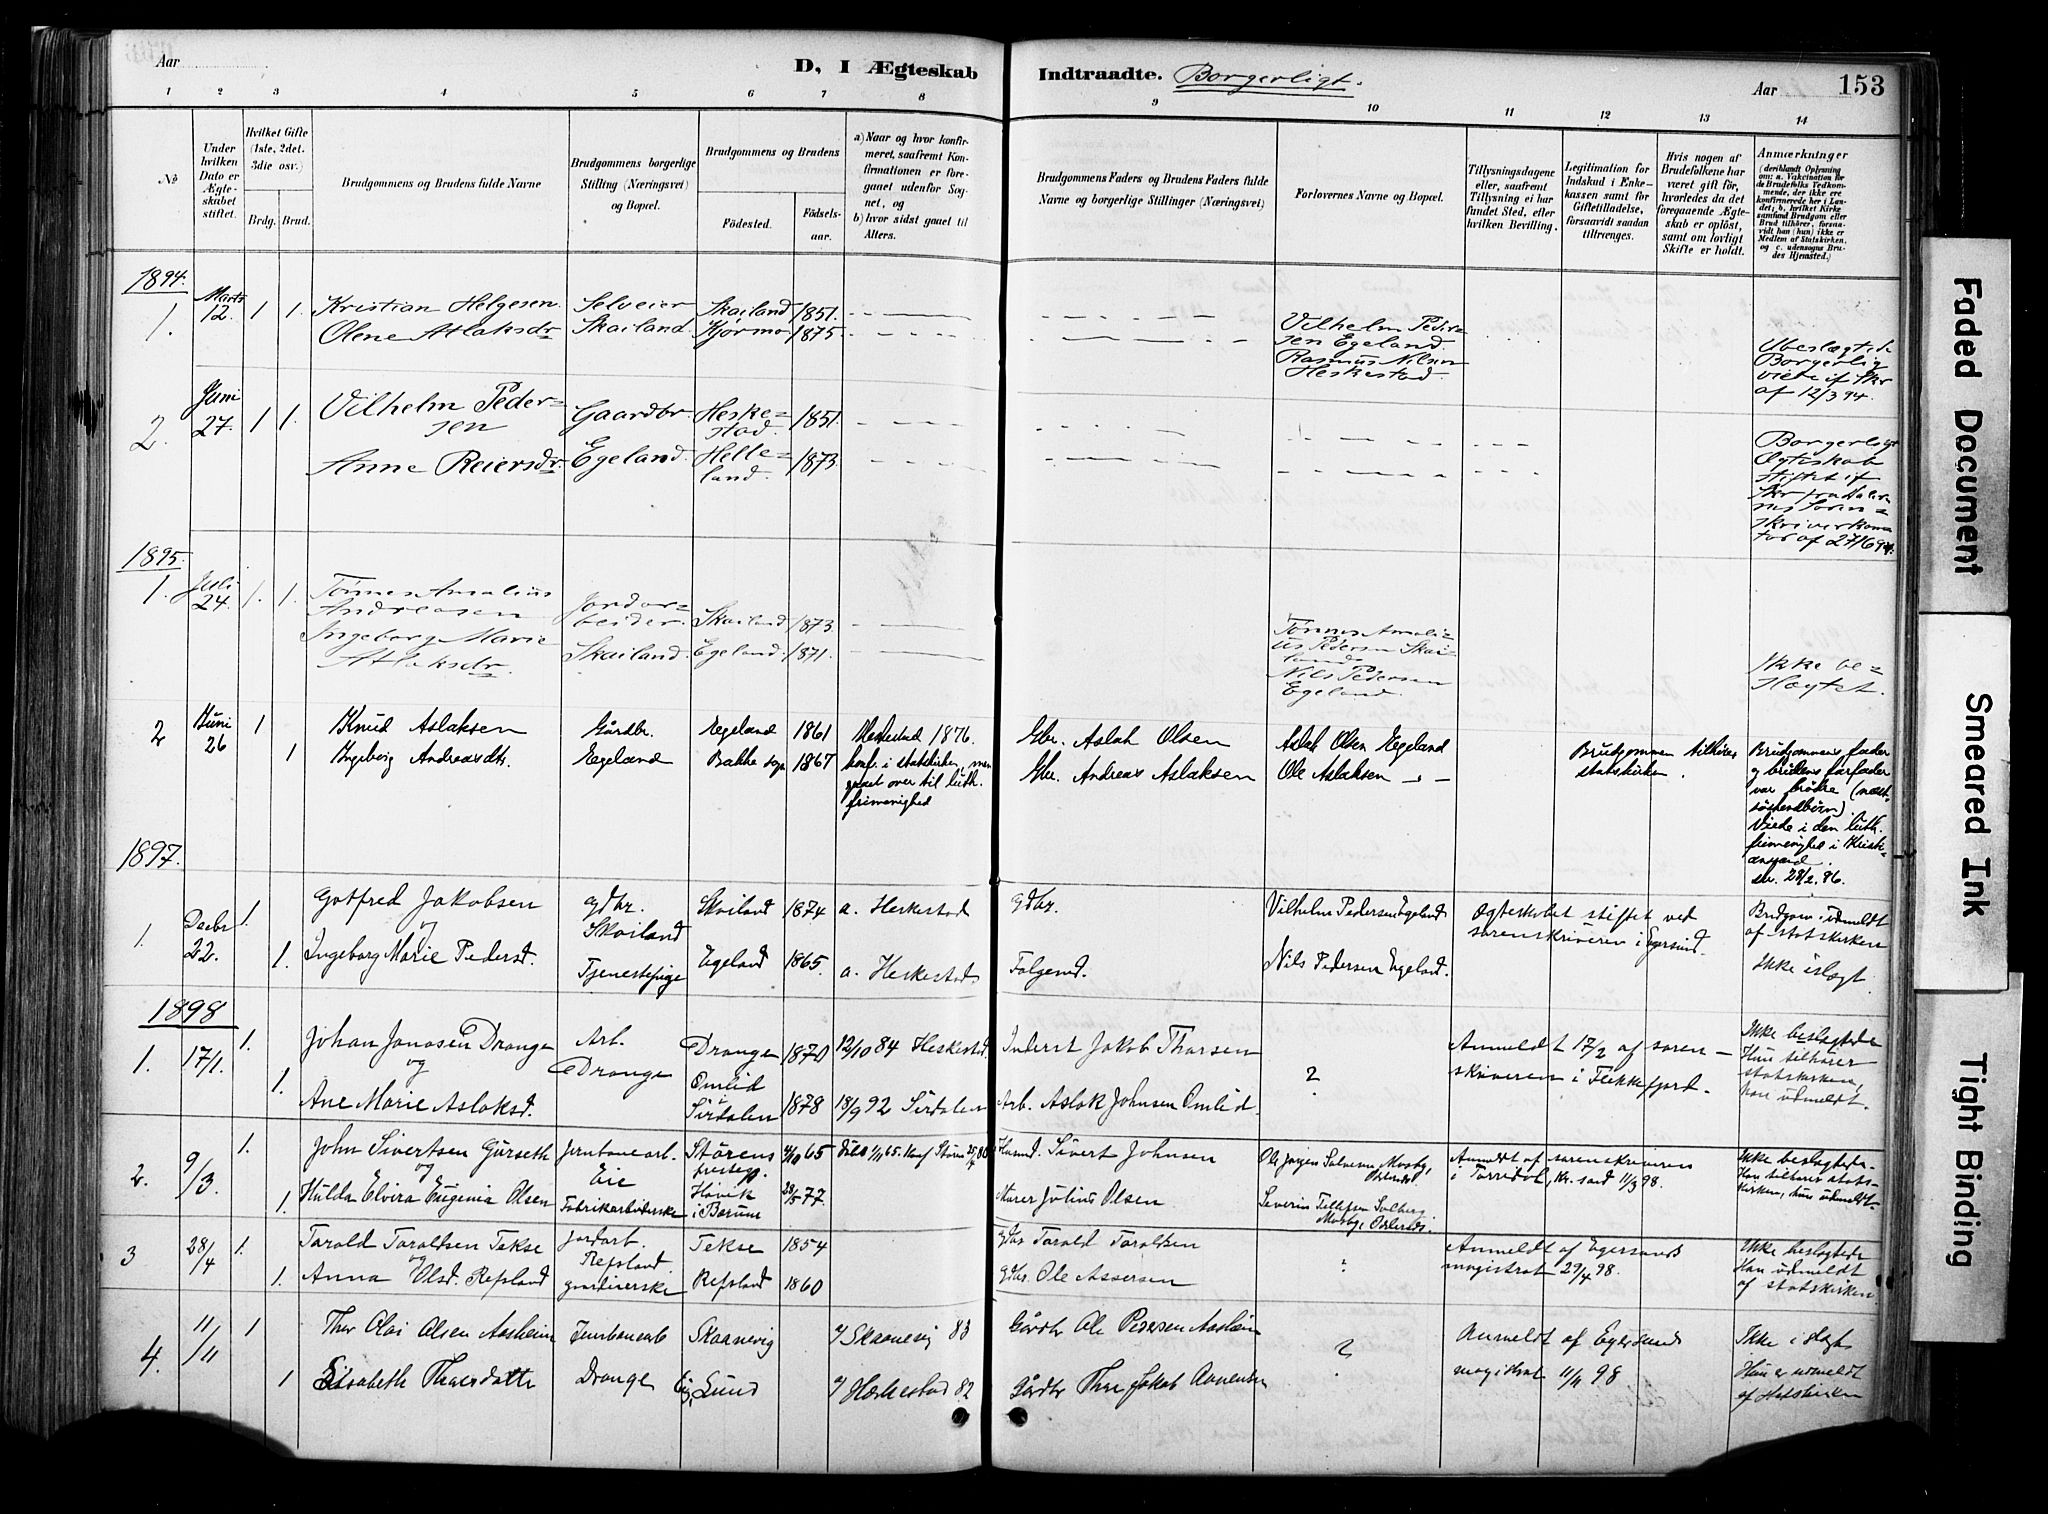 Aar
D, I Ægteskab Indtraadte. Borgerligt.
Aar
153
1 2 3 4 5 6 7 8 9 10 11 12 13 14
No
Under hvilken Dato er Ægteskabet stiftet.
Hvilket Gifte (1ste, 2det, 3die osv.)
Brdg. Brud.
Brudgommens og Brudens fulde Navne
Brudgommens borgerlige Stilling (Næringsvei) og Bopæl.
Brudgommens og Brudens
Födested.
Födselsaar.
a) Naar og hvor konfirmeret, saafremt Konfirmationen er foregaaet udenfor Sognet, og
b) hvor sidst gaaet til Alters.
Brudgommens Faders og Brudens Faders fulde Navne og borgerlige Stillinger (Næringsvei)
Forlovernes Navne og Bopæl.
Tillysningsdagene eller, saafremt Tillysning ei har fundet Sted, efter hvilken Bevilling.
Legitimation for Indskud i Enkekassen samt for Giftetilladelse, forsaavidt saadan tiltrænges.
Hvis nogen af Brudefolkene har været gift før, hvorledes da det foregaaende Ægteskab er oplöst, samt om lovligt Skifte er holdt.
Anmærkninger
(deriblandt Oplysning om: a. Vaccination for de Brudefolks Vedkommende, der ikke ere konfirmerede her i Landet; b. hvilket Kirkesamfund Brudgom eller Brud tilhörer, forsaavidt han (hun) ikke er Medlem af Statskirken, og c. udensogns Brudes Hjemsted.)
1894.
1. Marts 12. 1 1. Kristian Helgesen Selveier Skailand 1851.
Olene Atlaksdr Skailand. Hjørmo 1875.
Vilhelm Pedersen Egeland.
Rasmus Nilsen Heskestad.
Ubeslægtede
Borgerlig
viete if Skr
af 12/3 94.
2. Juni 27. 1 1. Vilhelm Pedersen Gaardbr. Heskestad. 1851.
Anne Reiersdr. Egeland. Helleland. 1873.
Borgerligt
Ægteskab
stiftet if
Skr fra Dalernes Sorenskriverkontor af 27/6 94.
1895.
1. Juli 24. 1. 1. Tønnes Amalius Andreasen Jordarbeider. Skailand 1873.
Ingeborg Marie Atlaksdr. Skailand. Egeland. 1871.
Tønnes Amalius Pedersen Skailand
Nils Pedersen Egeland.
Ikke beslægtet.
2 Juni 26 1 Knud Aslaksen Gårdbr. Egeland 1861 Heskestad 1876.
1 Ingeborg Andreasdtr. Egeland Bakke sogn 1867 konf. i statskirken, men gaaet over til luth. frimenighed
Gbr. Aslak Olsen
Gbr. Andreas Aslaksen
Aslak Olsen Egeland
Ole Aslaksen -"-
Brudgommen tilhører statskirken.
Brudgommens fader
og brudens farfader
var brødre (næstsøskendbørn)
Viede i den luth.
frimenighed i Kristiansand
28/2. 86.
1897.
1. Decbr 22. 1. Gotfred Jakobsen gdbr. Skailand Skailand 1874 a. Heskestad gdbr. Vilhelm Pedersen Egeland
og
1. Ingeborg Marie Pedersd. Tjenestepige Egeland 1865. a. Heskestad Nils Pedersen Egeland.
Ægteskabet stiftet ved
sorenskriveren i Egersund.
Brudgom. udmeldt
af statskirken
Ikke i slægt
1898
1. 17/1. 1. Johan Jonassen Drange Arb. Drange 1870 12/10 84 Heskestad. Inderst Jakob Thorsen
og Drange
1. Ane Marie Aslaksd. Omlid i Sirdalen 1878 18/9 92 Sirdalen Arb. Aslak Johnsen Omlid.
?
Anmeldt 17/2 af sorenskriveren i Flekkefjord.
Ikke beslægtede
Hun tilhører
statskirken,
han udmeldt.
2. 9/3. 1. John Sivertsen Gurseth Jernbanearb. Størens prestegj. 65
og Eie
1. Hulda Elvira Eugenia Olsen Fabrikarbeiderske Høvik i Bærum 77.
Husmd. Sivert Johnsen
Murer Julius Olsen
Ole Jørgen Salvesen Mosby, Oddernes
Severin Tellefsen Solberg. Mosby, Oddernes.
Anmeldt af sorenskriveren
i Torridal, Kr.sand 11/3 98.
Ikke beslægtede.
Han tilhører statskirken, hun udmeldt.
3 28/4 1. Tarald Taraldsen Tekse Jordarb. Refsland. Tekse 1854 gdbr Tarald Taraldsen
og
1. Anna Olsd. Refsland gardeierske Refsland 1860 gdbr. Ole Assersen
Anmeldt af Egersunds
magistrat 29/4 98.
Ikke beslægtede
Han udmeldt
af statskirken.
4. 11/11 1 Thor Olai Olsen Aasheim Jernbanearb Skaanevig Skaanevig 83 Gårdbr Ole Pedersen Aasheim
1 Elisabeth Thorsdatte Drange Lund Heskestad 82 Gårdbr Thor Jakob Aanensen
?
Anmeldt af Egersunds
magistrat 11/11 98
Ikke i slægt
Hun er udmeldt
af statskirken
Faded Document
Smeared Ink
Tight Binding